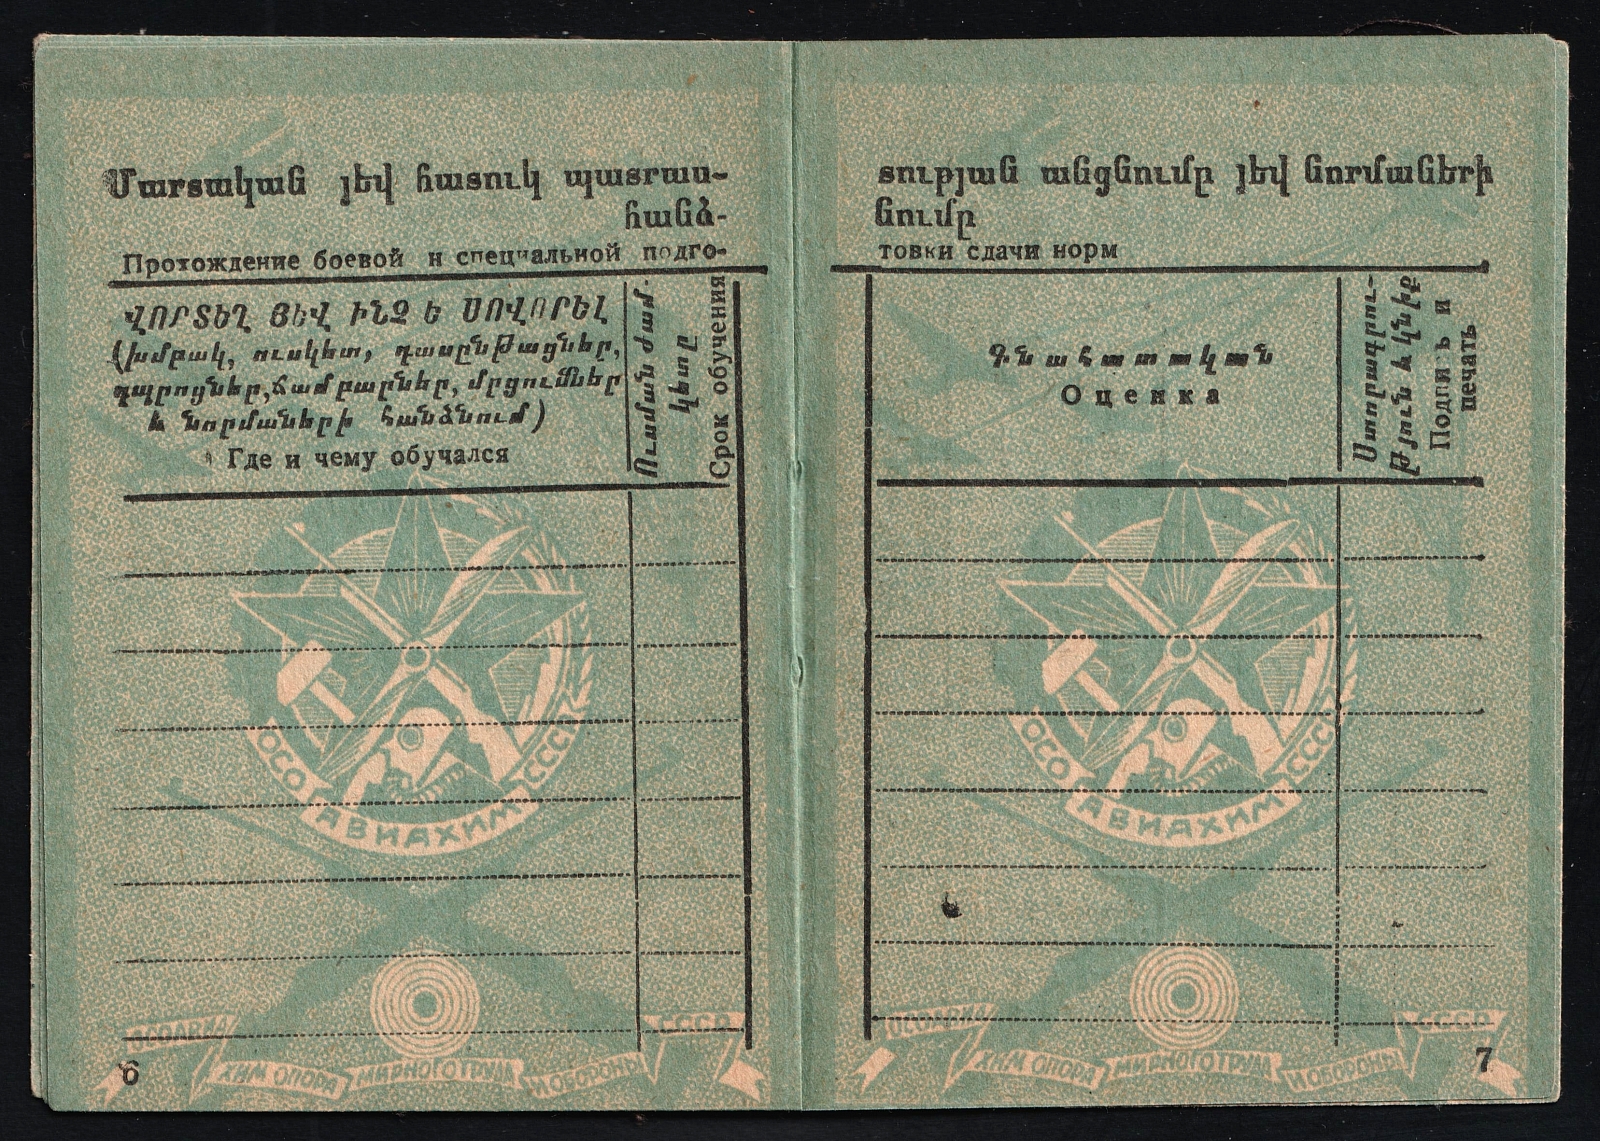 Մարտական յեվ հատուկ պատրաս-
հանձ-
Прохождение боевой и специальной подго-
ՎՈՐՏԵՂ ՅԵՎ ԻՆՉ Ե ՍՈՎՈՐԵԼ
(խմբակ, ուսկետ, դասընթացներ,
դպրոցներ, ճամբարներ, մրցումներ
և նորմաների հանձնում)
Где и чему обучался
Ուսման ժամ-
կետը
Срок обучения
ОСО
АВИАХИМ
СССР
ОСОАВИА
ХИМ ОПОРА
МИРНОГО ТРУДА
И ОБОРОНЫ
СССР
6
տության անցնումը յեվ նորմաների
նումը
товки сдачи норм
Գնահատական
Оценка
Ստորագրու-
թյուն և կնիք
Подпись и
печать
ОСО
АВИАХИМ
СССР
ОСОАВИА
ХИМ ОПОРА
МИРНОГО ТРУДА
И ОБОРОНЫ
СССР
7